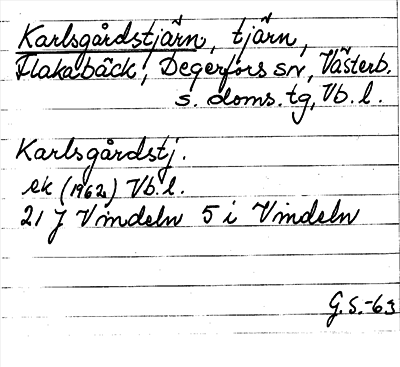 Karlsgårdstjärn, tjärn,
Flakabäck, Degerfors sn, Västerb.
s. doms. tg, Vb. l.
Karlsgårdstj.
ek (1962) Vb. l.
21 J Vindeln 5 i Vindeln
G.S.-63